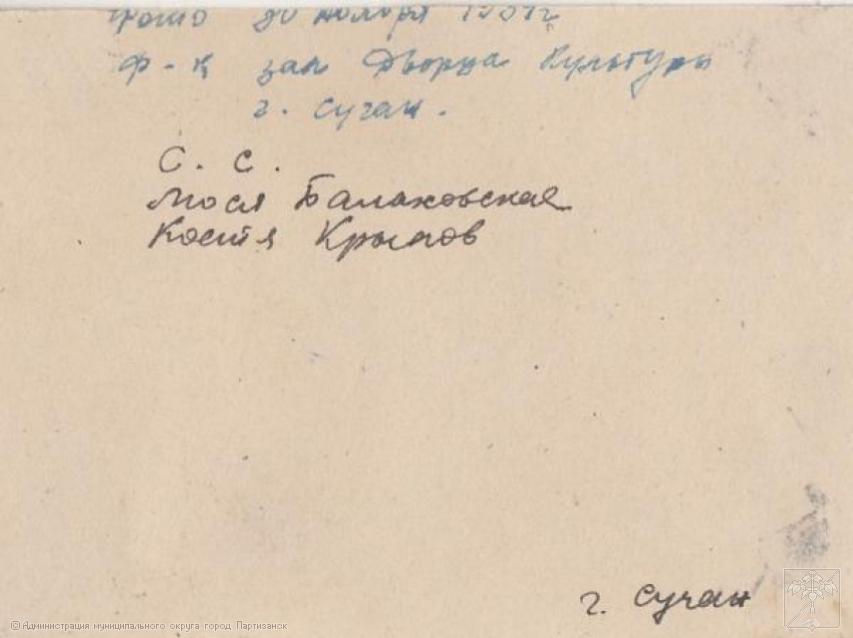 Фото 30 ноября 1957г
Ф-к зал Дворца Культуры
г. Сучан.
С. С.
Мося Балаховская
Костя Крымов
г. Сучан
© Администрация муниципального округа город Партизанск